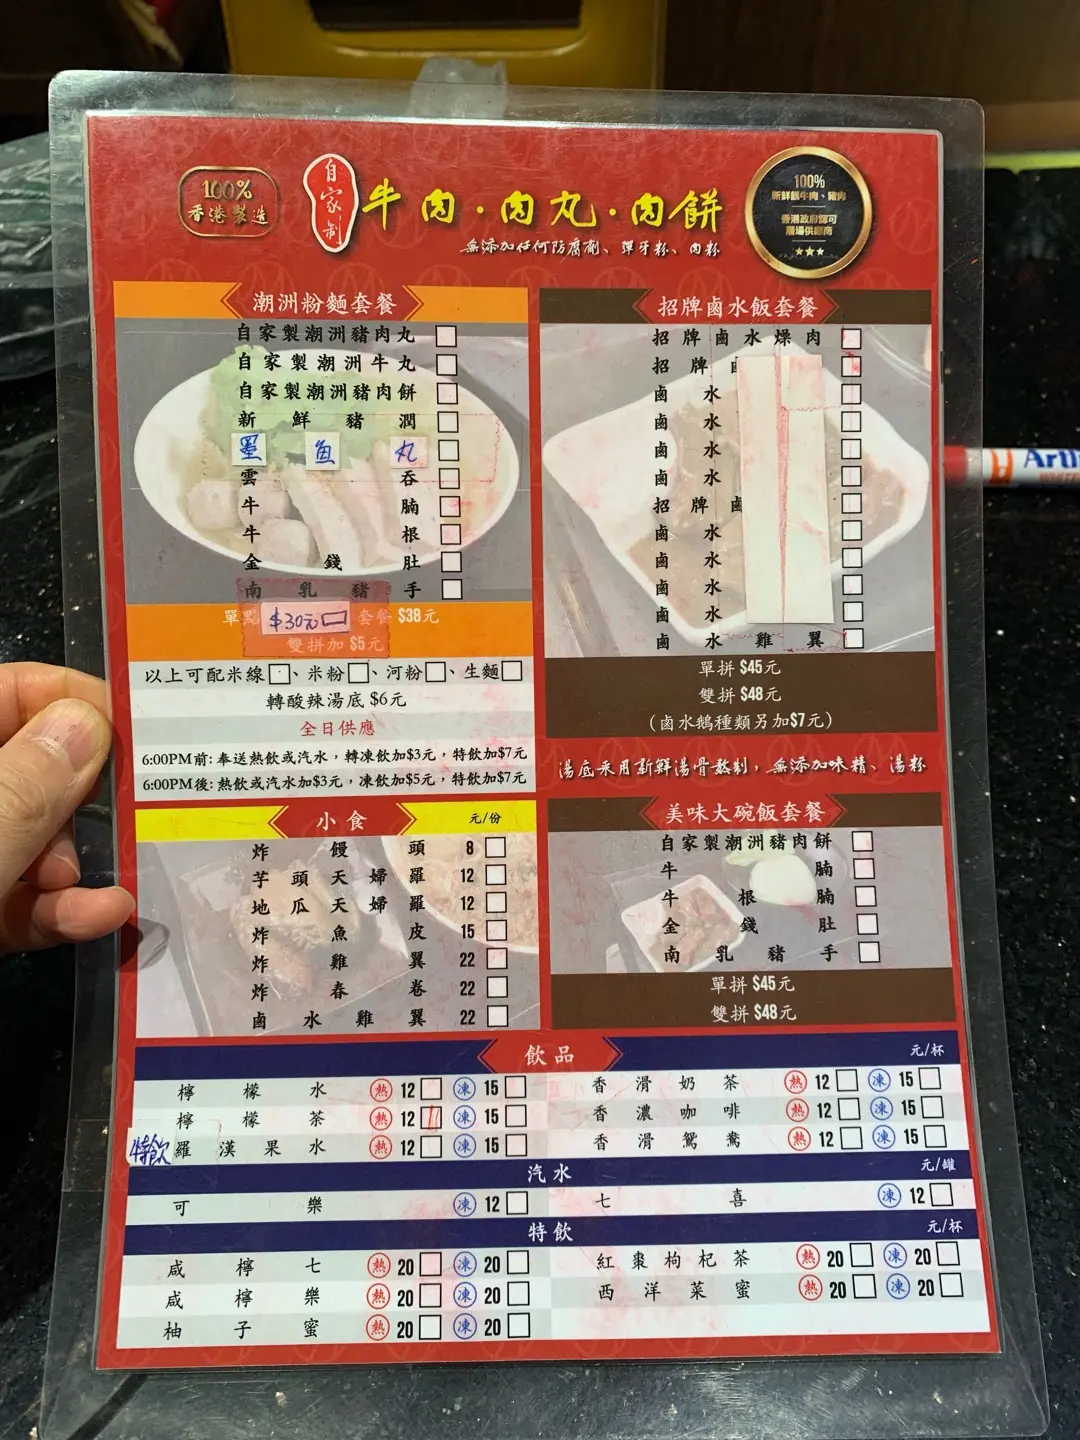 100%
香港製造
自家制
牛肉·肉丸·肉餅
無添加任何防腐劑、彈牙粉、肉粉
100%
新鮮靚牛肉、豬肉
香港政府認可
屠場供應商
潮洲粉麵套餐
自家製潮洲豬肉丸
自家製潮洲牛丸
自家製潮洲豬肉餅
新鮮豬潤
墨魚丸
雲吞
牛腩
牛根
金錢肚
南乳豬手
單點 $30元 套餐 $38元
雙拼加 $5元
以上可配米線、米粉、河粉、生麵
轉酸辣湯底 $6元
全日供應
6:00PM前: 奉送熱飲或汽水，轉凍飲加$3元，特飲加$7元
6:00PM後: 熱飲或汽水加$3元，凍飲加$5元，特飲加$7元
招牌鹵水飯套餐
招牌鹵水燥肉
招牌
鹵水
鹵水
鹵水
鹵水
招牌鹵
鹵水
鹵水
鹵水
鹵水
鹵水雞翼
單拼 $45元
雙拼 $48元
(鹵水鵝種類另加$7元)
湯底采用新鮮湯骨熬制，無添加味精、湯粉
小食 元/份
炸饅頭 8
芋頭天婦羅 12
地瓜天婦羅 12
炸魚皮 15
炸雞翼 22
炸春卷 22
鹵水雞翼 22
美味大碗飯套餐
自家製潮洲豬肉餅
牛腩
牛根腩
金錢肚
南乳豬手
單拼 $45元
雙拼 $48元
飲品 元/杯
檸檬水 熱 12 凍 15
檸檬茶 熱 12 凍 15
特飲 羅漢果水 熱 12 凍 15
香滑奶茶 熱 12 凍 15
香濃咖啡 熱 12 凍 15
香滑鴛鴦 熱 12 凍 15
汽水 元/罐
可樂 凍 12
七喜 凍 12
特飲 元/杯
咸檸七 熱 20 凍 20
咸檸樂 熱 20 凍 20
柚子蜜 熱 20 凍 20
紅棗枸杞茶 熱 20 凍 20
西洋菜蜜 熱 20 凍 20